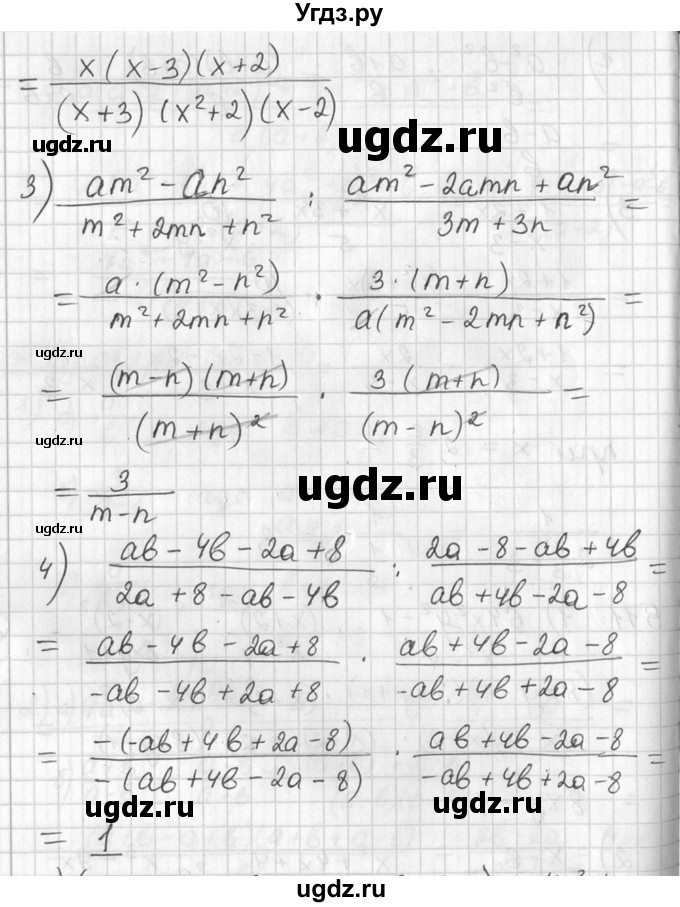 Угдз.ру
= x(x-3)(x+2) / (x+3)(x²+2)(x-2)
ugdz.ru
ugdz.ru
3) am² - an² / m² + 2mn + n² : am² - 2amn + an² / 3m + 3n =
ugdz.ru
= a·(m² - n²) / m² + 2mn + n² · 3·(m+n) / a(m² - 2mn + n²) =
ugdz.ru
= (m-n)(m+n) / (m+n)² · 3(m+n) / (m-n)² =
ugdz.ru
ugdz.ru
= 3 / m-n
ugdz.ru
4) ab - 4b - 2a + 8 / 2a + 8 - ab - 4b : 2a - 8 - ab + 4b / ab + 4b - 2a - 8 =
= ab - 4b - 2a + 8 / -ab - 4b + 2a + 8 · ab + 4b - 2a - 8 / -ab + 4b + 2a - 8 =
ugdz.ru
= -(-ab + 4b + 2a - 8) / -(ab + 4b - 2a - 8) · ab + 4b - 2a - 8 / -ab + 4b + 2a - 8 =
ugdz.ru
ugdz.ru
= 1
ugdz.ru